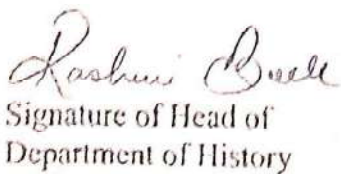 Rashmi
Signature of Head of
Department of History